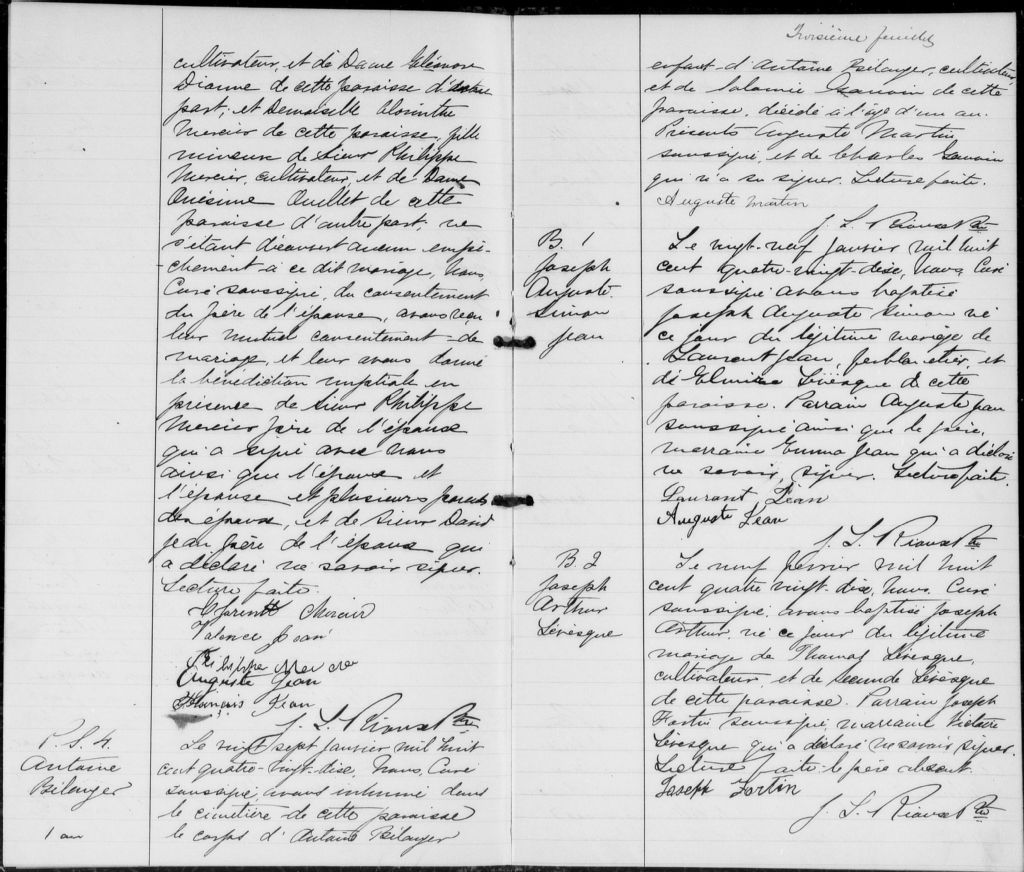 cultivateur, et de Dame Eléonore
Dionne de cette paroisse d'une
part; et Demoiselle Absinthe
Mercier de cette paroisse, fille
mineure de Sieur Philippe
Mercier, cultivateur, et de Dame
Onésime Ouellet de cette
paroisse d'autre part, ne
s'étant découvert aucun empê-
chement à ce dit mariage, Nous,
Curé soussigné, du consentement
du père de l'épouse, avons reçu
leur mutuel consentement de
mariage, et leur avons donné
la bénédiction nuptiale en
présence de Sieur Philippe
Mercier père de l'épouse
qui a signé avec nous
ainsi que l'époux et
l'épouse et plusieurs parents
des époux, et de Sieur David
Jean frère de l'époux qui
a déclaré ne savoir signer.
Lecture faite.
Valence Jean
Philippe Mercier
Auguste Jean
François Jean
J. L. Rioux Ptre
P. S. 4.
Antoine
Bélanger
1 an
Le vingt sept janvier mil huit
cent quatre-vingt-dix, Nous, Curé
soussigné, avons inhumé dans
le cimetière de cette paroisse
le corps d'Antoine Bélanger
Troisième feuillet
enfant d'Antoine Bélanger, cultivateur,
et de Salomée Gauvin de cette
paroisse, décédé à l'âge d'un an.
Présents Auguste Martin,
soussigné, et de Charles Gauvin
qui n'a su signer. Lecture faite.
Auguste Martin
J. L. Rioux Ptre
B. 1
Joseph
Auguste
Simon
Jean
Le vingt-neuf janvier mil huit
cent quatre-vingt-dix, Nous, Curé
soussigné avons baptisé
Joseph Auguste Simon né
ce jour du légitime mariage de
Laurent Jean, ferblantier, et
de Elmire Lévesque de cette
paroisse. Parrain Auguste Jean
soussigné ainsi que le père,
marraine Emma Jean qui a déclaré
ne savoir signer. Lecture faite.
Laurent Jean
Auguste Jean
J. L. Rioux Ptre
B. 2
Joseph
Arthur
Lévesque
Le neuf février mil huit
cent quatre vingt-dix, Nous, Curé
soussigné, avons baptisé Joseph
Arthur, né ce jour du légitime
mariage de Thomas Lévesque,
cultivateur, et de Seconde Lévesque
de cette paroisse. Parrain Joseph
Fortin soussigné marraine Victoire
Lévesque qui a déclaré ne savoir signer.
Lecture faite le père absent.
Joseph Fortin
J. L. Rioux Ptre